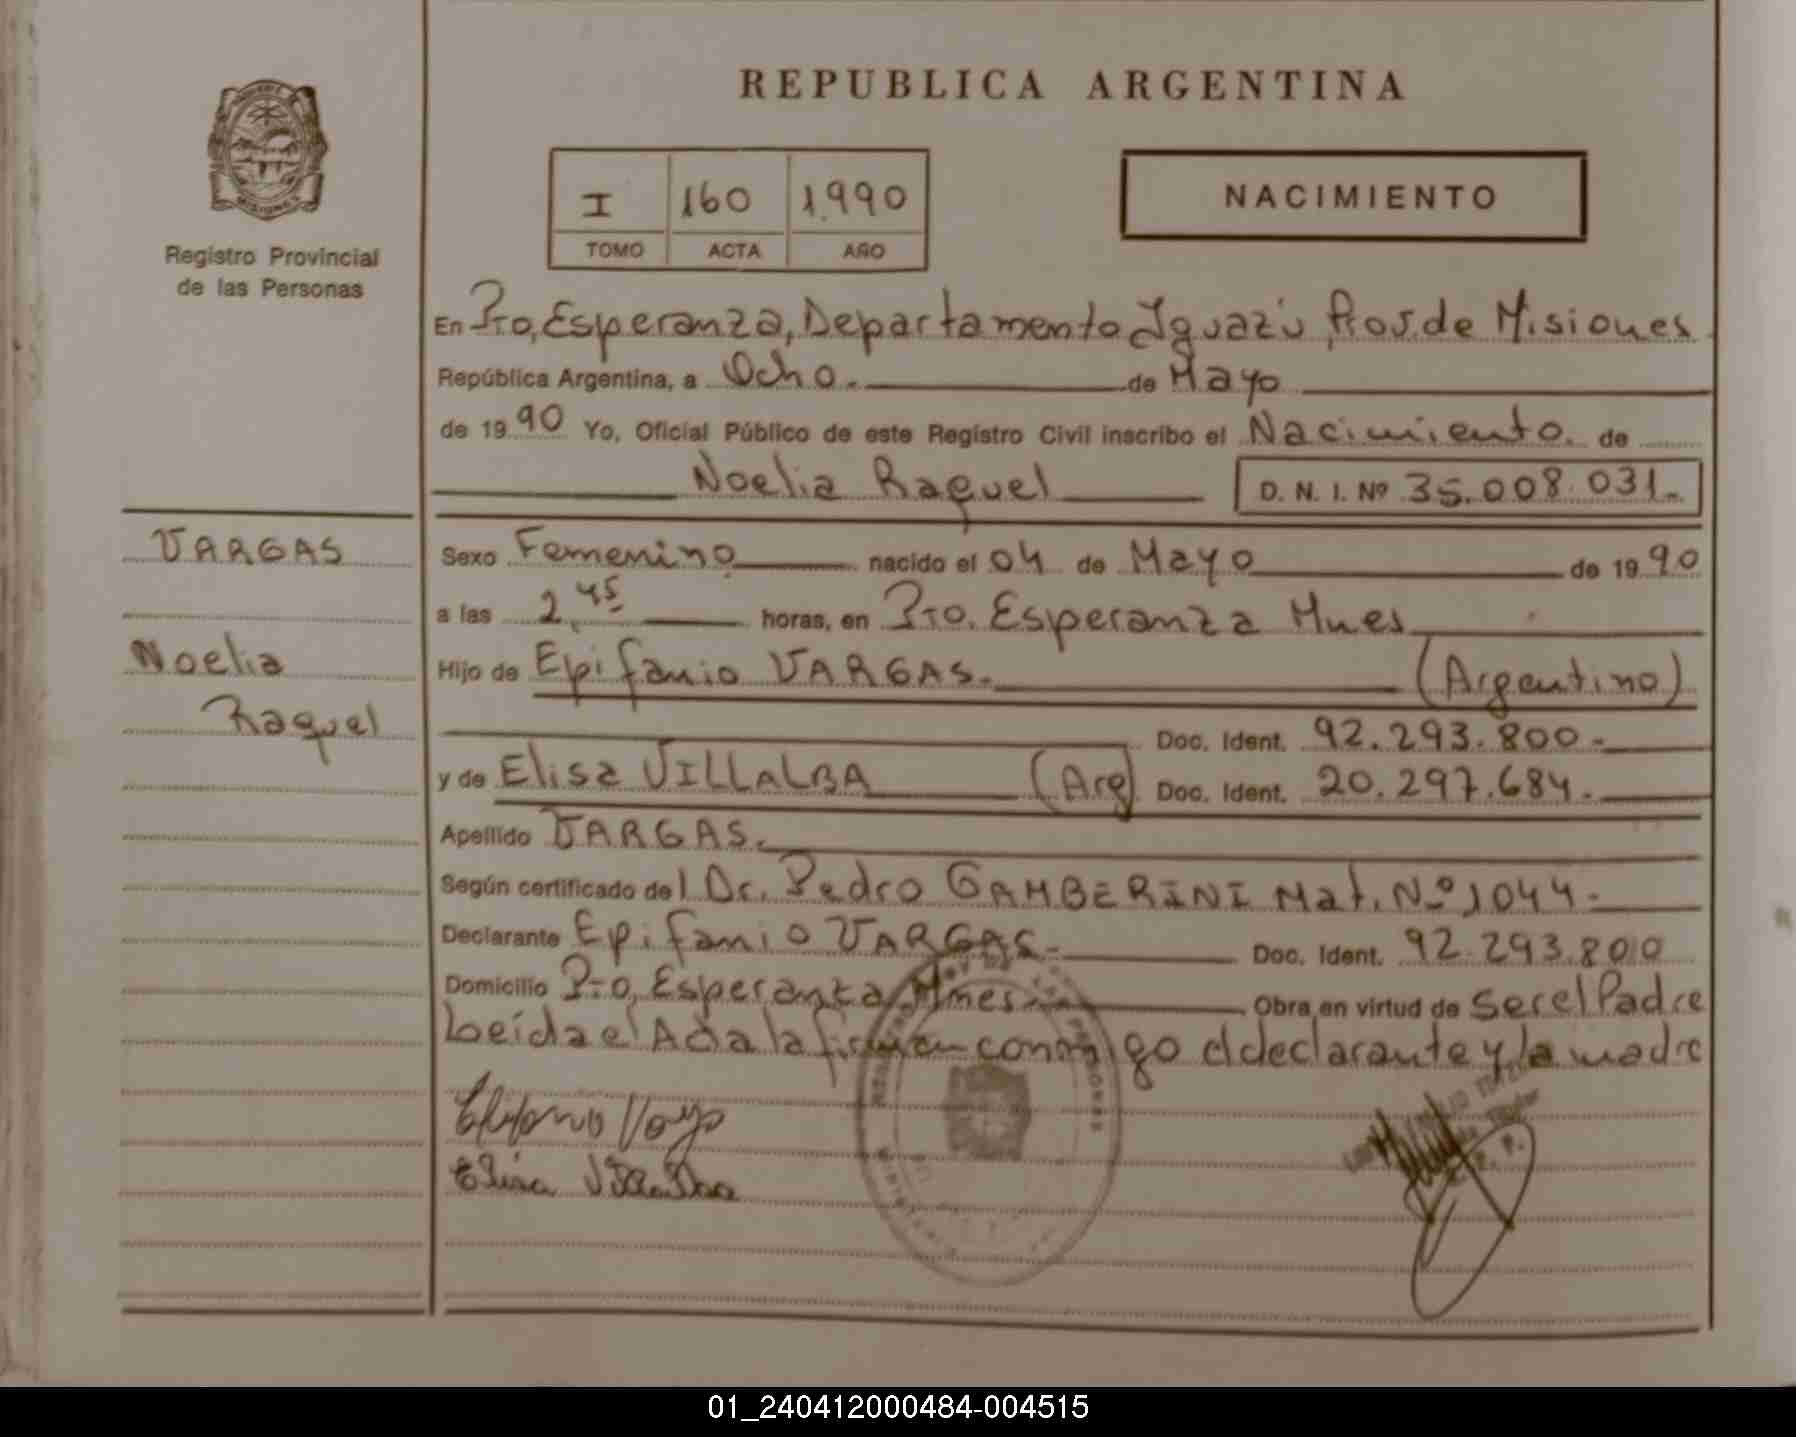 REPUBLICA ARGENTINA
I 160 1.990
TOMO ACTA AÑO
NACIMIENTO
MISIONES
Registro Provincial
de las Personas
En Pto, Esperanza, Departamento Iguazú, Prov. de Misiones
República Argentina, a Ocho. de Mayo
de 1990 Yo, Oficial Público de este Registro Civil inscribo el Nacimiento. de
Noelia Raquel D. N. I. Nº 35.008.031.-
VARGAS
Noelia
Raquel
Sexo Femenino nacido el 04 de Mayo de 1990
a las 2,45 horas, en Pto. Esperanza Mnes
Hijo de Epifanio VARGAS.- (Argentino)
Doc. Ident. 92.293.800.-
y de Elisa VILLALBA (Arg) Doc. Ident. 20.297.684.-
Apellido VARGAS.
Según certificado del Dr. Pedro GAMBERINI Mat. Nº 1044.-
Declarante Epifanio VARGAS.- Doc. Ident. 92.293.800
Domicilio Pto, Esperanza Mnes Obra en virtud de ser el Padre
Leída el Acta la firman conmigo el declarante y la madre
REGISTRO DE LAS PERSONAS
01_240412000484-004515